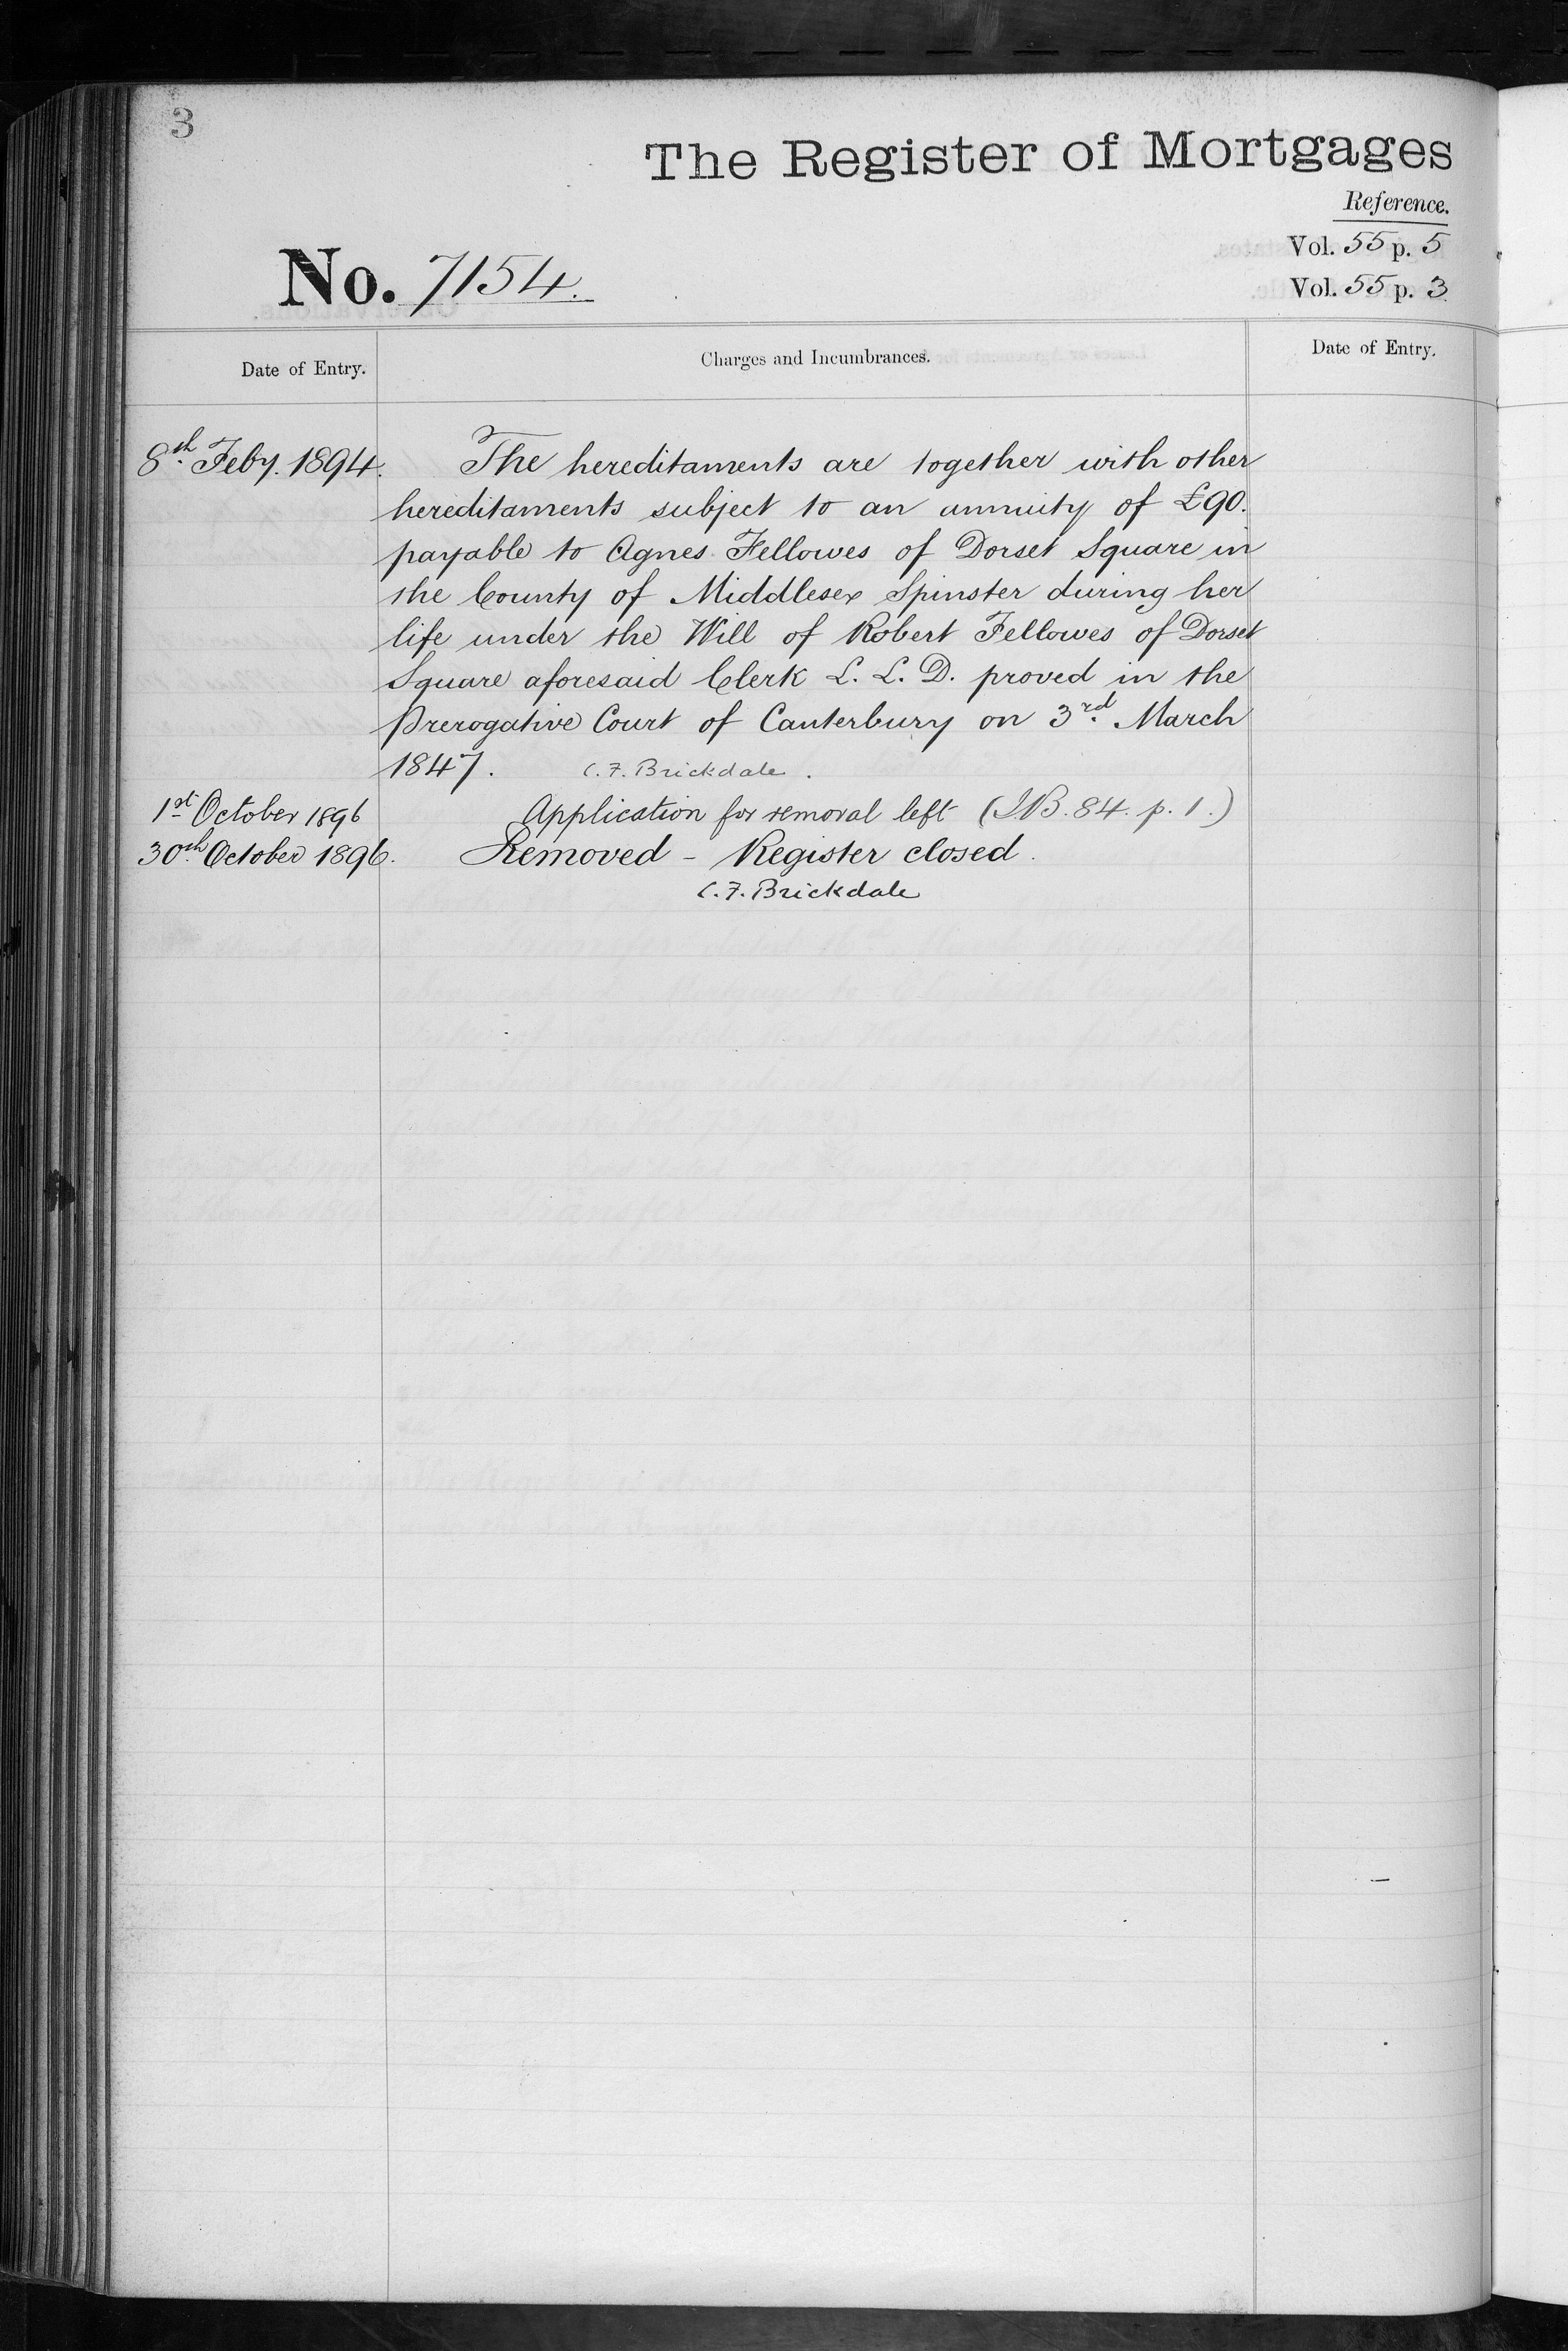 3
The Register of Mortgages
Reference.
Vol. 55 p. 5
No. 7154.
Vol. 55 p. 3
Date of Entry.
Charges and Incumbrances.
Date of Entry.
8th Feby. 1894. The hereditaments are together with other
hereditaments subject to an annuity of £90.
payable to Agnes Fellowes of Dorset Square in
the County of Middlesex Spinster during her
life under the Will of Robert Fellowes of Dorset
Square aforesaid Clerk L. L. D. proved in the
Prerogative Court of Canterbury on 3rd March
1847. C. F. Brickdale.
1st October 1896 Application for removal left (IB. 84. p. 1.)
30th October 1896. Removed - Register closed.
C. F. Brickdale